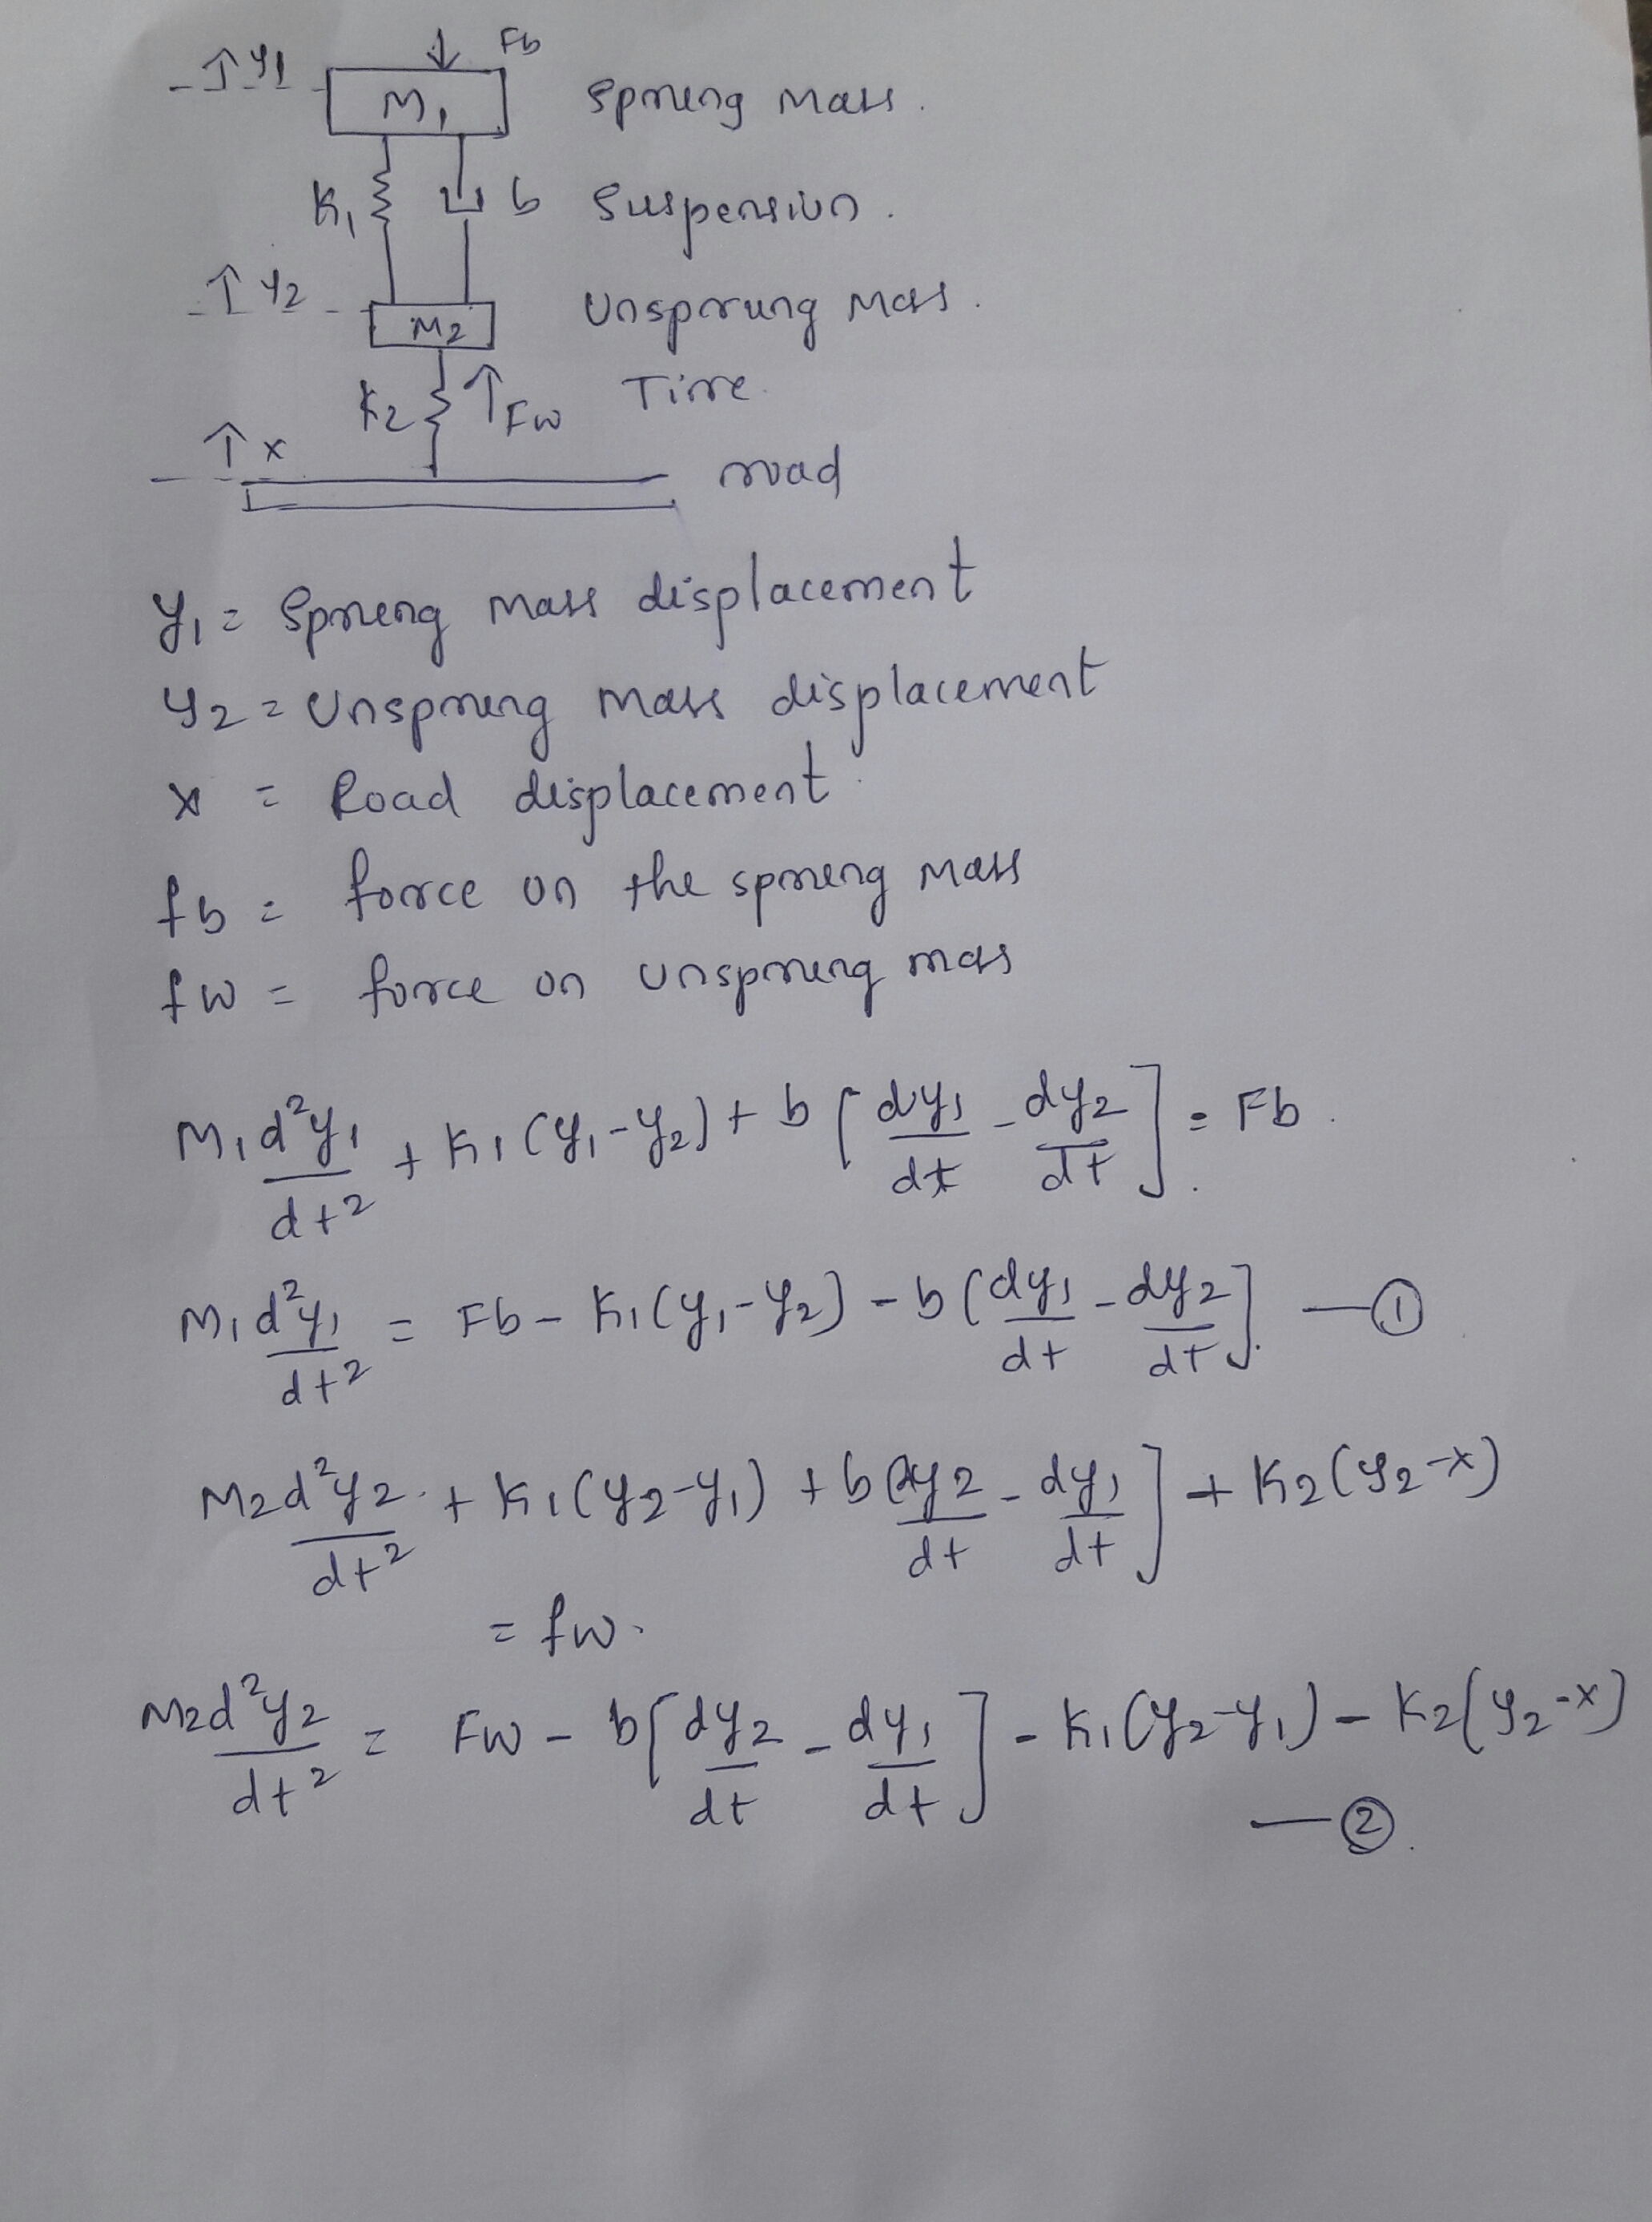 ↑ y1
Fb
M1 Sprung mass.
K1 b Suspension.
↑ y2
M2 Unsprung mass.
K2 ↑ Fw Tire
↑ x
road
y1 = Sprung mass displacement
y2 = Unsprung mass displacement
x = Road displacement
fb = force on the sprung mass
fw = force on unsprung mass
M1 d²y1/dt² + K1(y1-y2) + b[dy1/dt - dy2/dt] = Fb.
M1 d²y1/dt² = Fb - K1(y1-y2) - b(dy1/dt - dy2/dt]. —①
M2 d²y2/dt² + K1(y2-y1) + b[dy2/dt - dy1/dt] + K2(y2-x)
= fw.
M2 d²y2/dt² = Fw - b[dy2/dt - dy1/dt] - K1(y2-y1) - K2(y2-x)
—②.